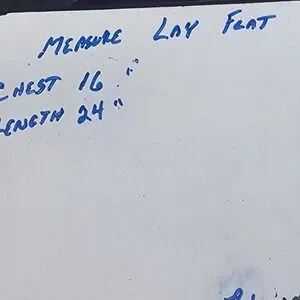 MEASURE LAY FLAT
CHEST 16"
LENGTH 24"